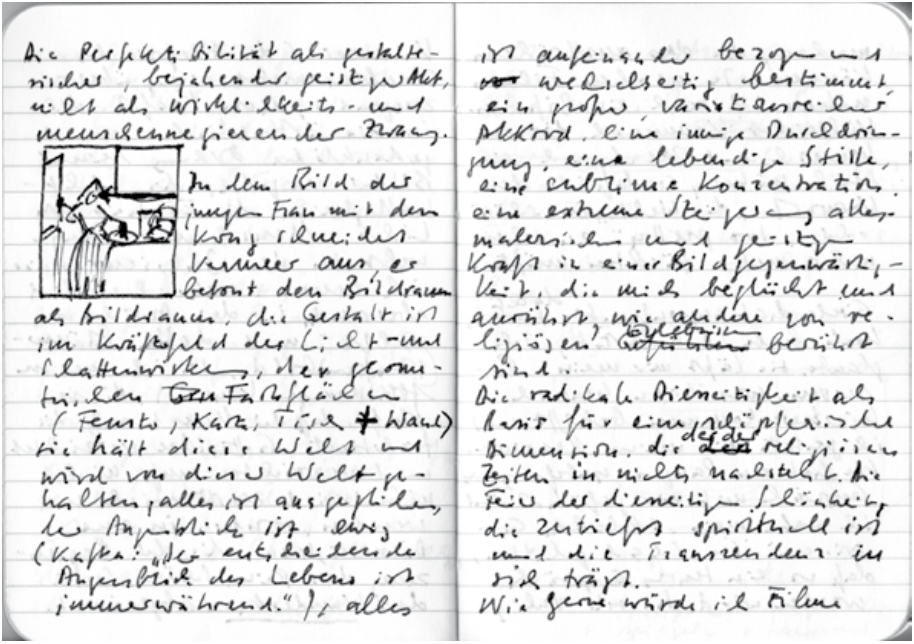 Die Perfektibilität als gestalte-
rischer, bejahender geistiger Akt,
nicht als wirklichkeits- und
menschennegierender Zwang.
In dem Bild der
jungen Frau mit dem
Krug schneidet
Vermeer aus, er
betont den Bildraum
als Bildraum, die Gestalt ist
im Kräftefeld der Licht- und
Schattenwirkung, der geome-
trischen Farbflächen
(Fenster, Karte, Tisch + Wand)
sie hält diese Welt und
wird von dieser Welt ge-
halten, alles ist ausgeglichen,
der Augenblick ist ewig
(Kafka: „Der entscheidende
Augenblick des Lebens ist
immerwährend."), alles
ist aufeinander bezogen und
wechselseitig bestimmt,
ein großer, variantenreicher
Akkord. Eine innige Durchdrin-
gung, eine lebendige Stille,
eine sublime Konzentration,
eine extreme Steigerung aller
malerischen und geistigen
Kraft in einer Bildgegenwärtig-
keit, die mich beglückt und
anrührt, wie andere von re-
ligiösen Erlebnissen berührt
sind.
Die radikale Diesseitigkeit als
Basis für eine schöpferische
Dimension, die der der religiösen
Zeiten in nichts nachsteht. Die
Feier der diesseitigen Schönheit,
die zutiefst spirituell ist
und die Transzendenz in
sich trägt.
Wie gerne würde ich Filme